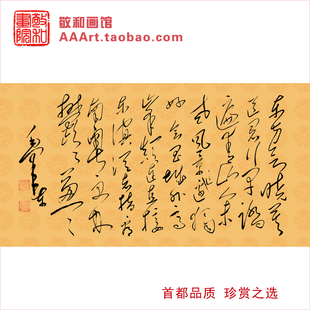 敬和画馆
AAArt.taobao.com
东方欲晓莫
道君行早踏
遍青山人未
老风景这边独
好会昌城外高
峰颠连直接
东溟战士指看
南粤更加
郁郁葱葱
毛泽东
首都品质 珍赏之选